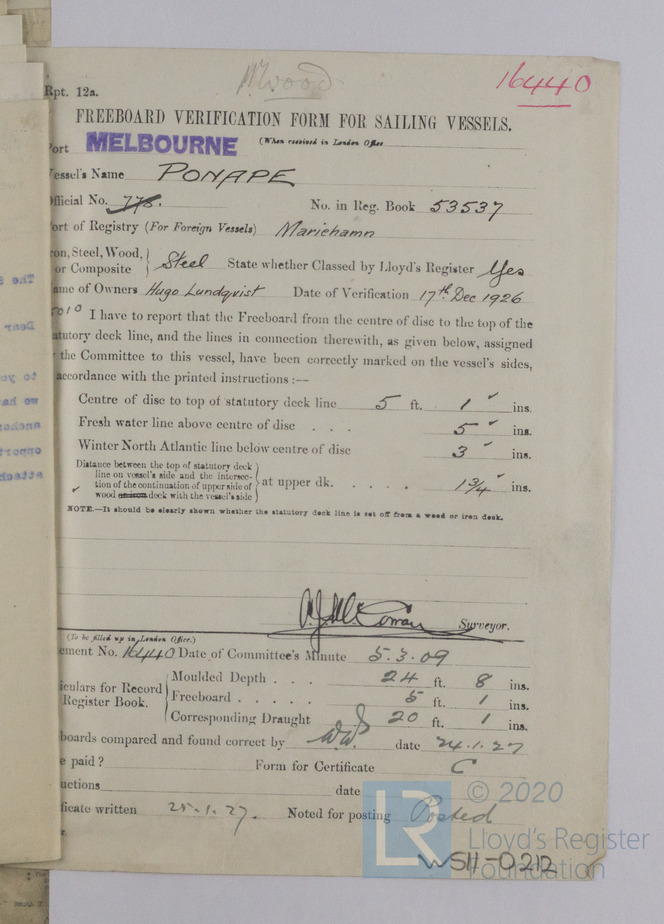 Wood
Rpt. 12a.
16440
FREEBOARD VERIFICATION FORM FOR SAILING VESSELS.
ort MELBOURNE (When received in London Office
essel's Name PONAPE
fficial No. 778. No. in Reg. Book 53537
ort of Registry (For Foreign Vessels) Mariehamn
ron, Steel, Wood, or Composite Steel State whether Classed by Lloyd's Register Yes
ame of Owners Hugo Lundqvist Date of Verification 17th Dec 1926
I have to report that the Freeboard from the centre of disc to the top of the
atutory deck line, and the lines in connection therewith, as given below, assigned
the Committee to this vessel, have been correctly marked on the vessel's sides,
accordance with the printed instructions :—
Centre of disc to top of statutory deck line 5 ft. 1 ins.
Fresh water line above centre of disc . . . 5 ins.
Winter North Atlantic line below centre of disc 3 ins.
Distance between the top of statutory deck
line on vessel's side and the intersec-
tion of the continuation of upper side of
wood deck with the vessel's side
at upper dk. . . . . . 1 3/4 ins.
NOTE.—It should be clearly shown whether the statutory deck line is set off from a wood or iron deck.
Surveyor.
(To be filled up in London Office.)
ement No. 16440 Date of Committee's Minute 5.3.09
iculars for Record
Register Book.
Moulded Depth . . . 24 ft. 8 ins.
Freeboard . . . . . 5 ft. 1 ins.
Corresponding Draught 20 ft. 1 ins.
boards compared and found correct by WW date 24.1.27
e paid ? Form for Certificate C
uctions date
ficate written 25.1.27. Noted for posting Posted
r.
LR © 2020
Lloyd's Register
Foundation
WSH-0212